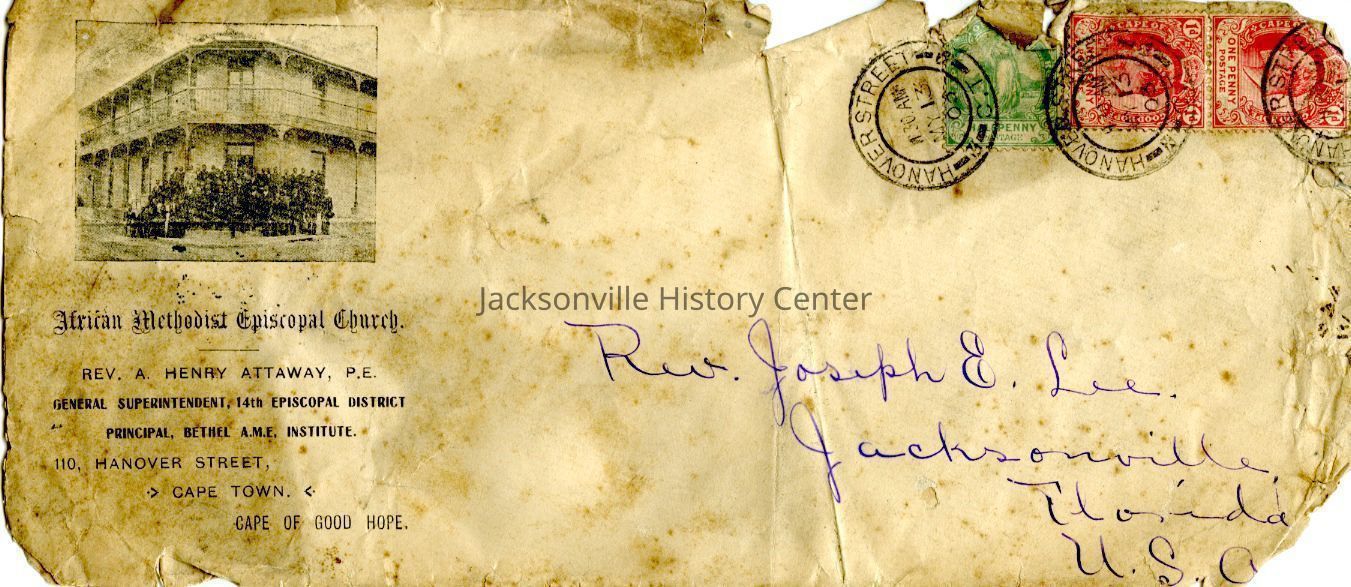 African Methodist Episcopal Church.
REV. A. HENRY ATTAWAY, P.E.
GENERAL SUPERINTENDENT, 14th EPISCOPAL DISTRICT
PRINCIPAL, BETHEL A.M.E, INSTITUTE.
110, HANOVER STREET,
CAPE TOWN.
CAPE OF GOOD HOPE.
HANOVER STREET
MY 13
PENNY
HANOVER
CAPE OF
1d
HANOVER
CAPE OF
ONE PENNY
POSTAGE
1d
Jacksonville History Center
Rev. Joseph E. Lee.
Jacksonville,
Florida
U.S.A